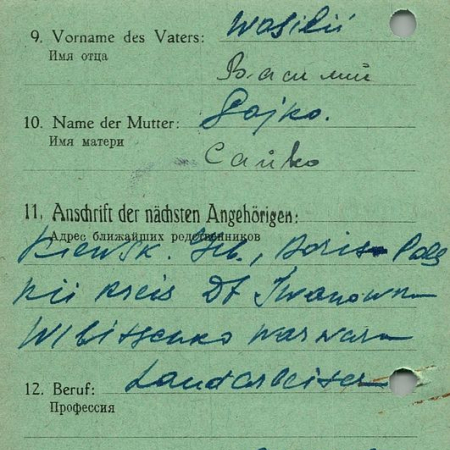 9. Vorname des Vaters: Wasilii
Имя отца
Василий
10. Name der Mutter: Sajko.
Имя матери
Сайко
11. Anschrift der nächsten Angehörigen:
Адрес ближайших родственников
Kiewsk. Geb.,
kii Kreis Df Iwanowka
Warwara
12. Beruf: Landarbeiter
Профессия